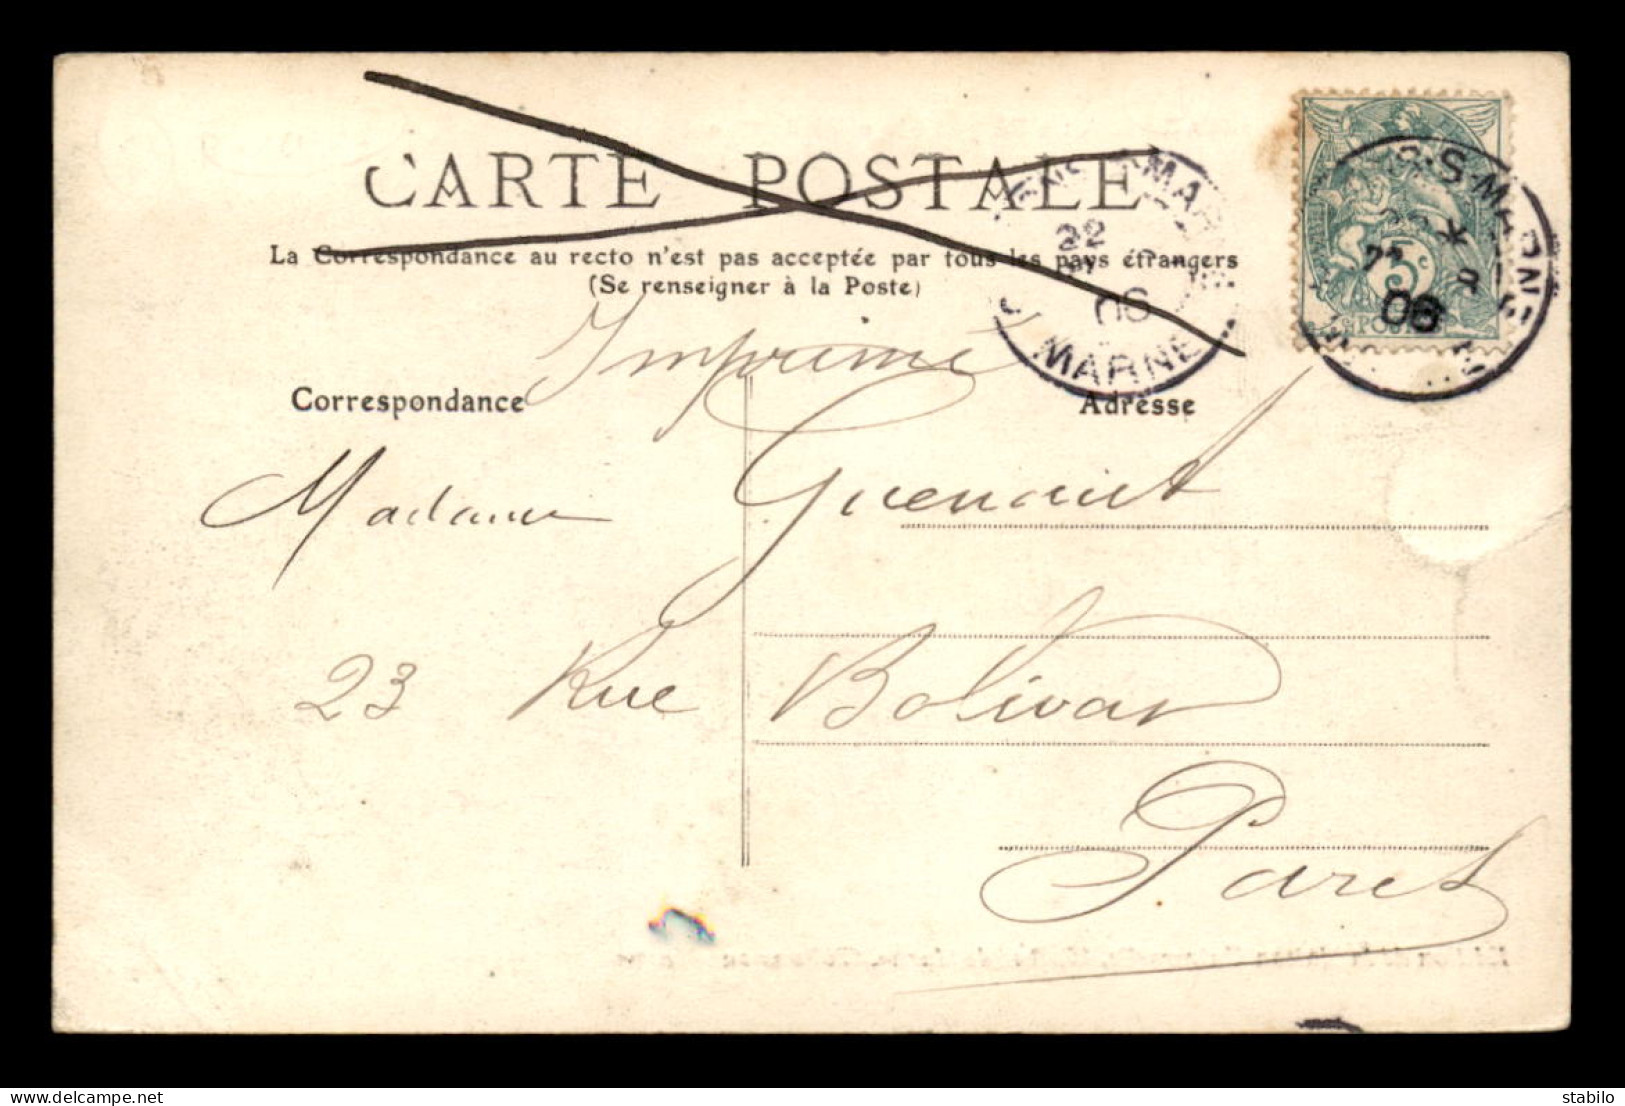 CARTE POSTALE
La Correspondance au recto n'est pas acceptée par tous les pays étrangers
(Se renseigner à la Poste)
22
06
MARNE
S-MARNE
22
5
06
Imprimé
Correspondance
Adresse
Madame Guenault
23 Rue Bolivar
Paris
delcampe.net
stabilo